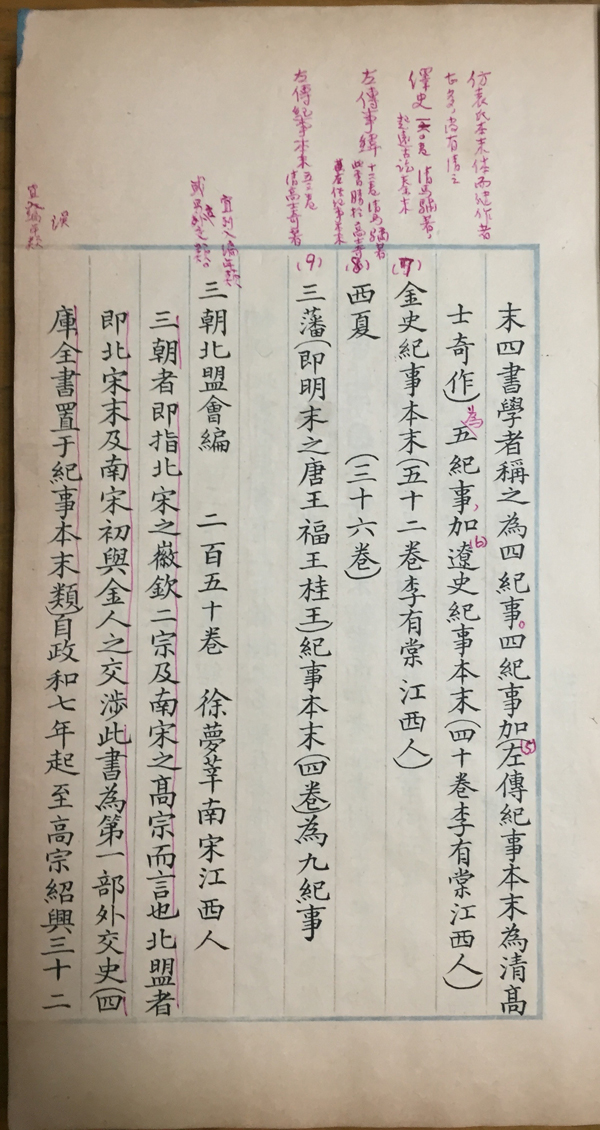 仿袁氏本末体而作者
尚有清之
繹史一六〇卷 清馬驌著
起遠古迄秦末
左傳事緯十二卷清馬驌著
此書勝於高士奇
左傳紀事本末
左傳紀事本末五三卷
清高士奇著
宜列入編年類
宜入編年類
误
末四書學者稱之為四紀事。四紀事加(5)(左傳紀事本末為清高
士奇作)為五紀事,加(6)遼史紀事本末(四十卷李有棠江西人)
(7)金史紀事本末(五十二卷李有棠江西人)
(8)西夏 (三十六卷)
(9)三藩(即明末之唐王福王桂王)紀事本末(四卷)為九紀事
三朝北盟會編 二百五十卷 徐夢莘南宋江西人
三朝者即指北宋之徽欽二宗及南宋之高宗而言也北盟者
即北宋末及南宋初與金人之交涉此書為第一部外交史(四
庫全書置于紀事本末類)自政和七年起至高宗紹興三十二